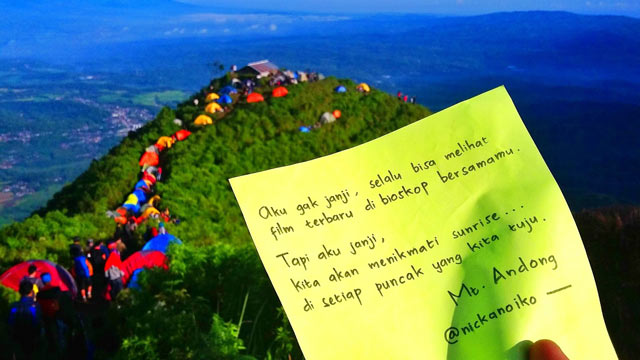 Aku gak janji, selalu bisa melihat
film terbaru di bioskop bersamamu.
Tapi aku janji,
kita akan menikmati sunrise...
di setiap puncak yang kita tuju.
Mt. Andong
@nickanoiko